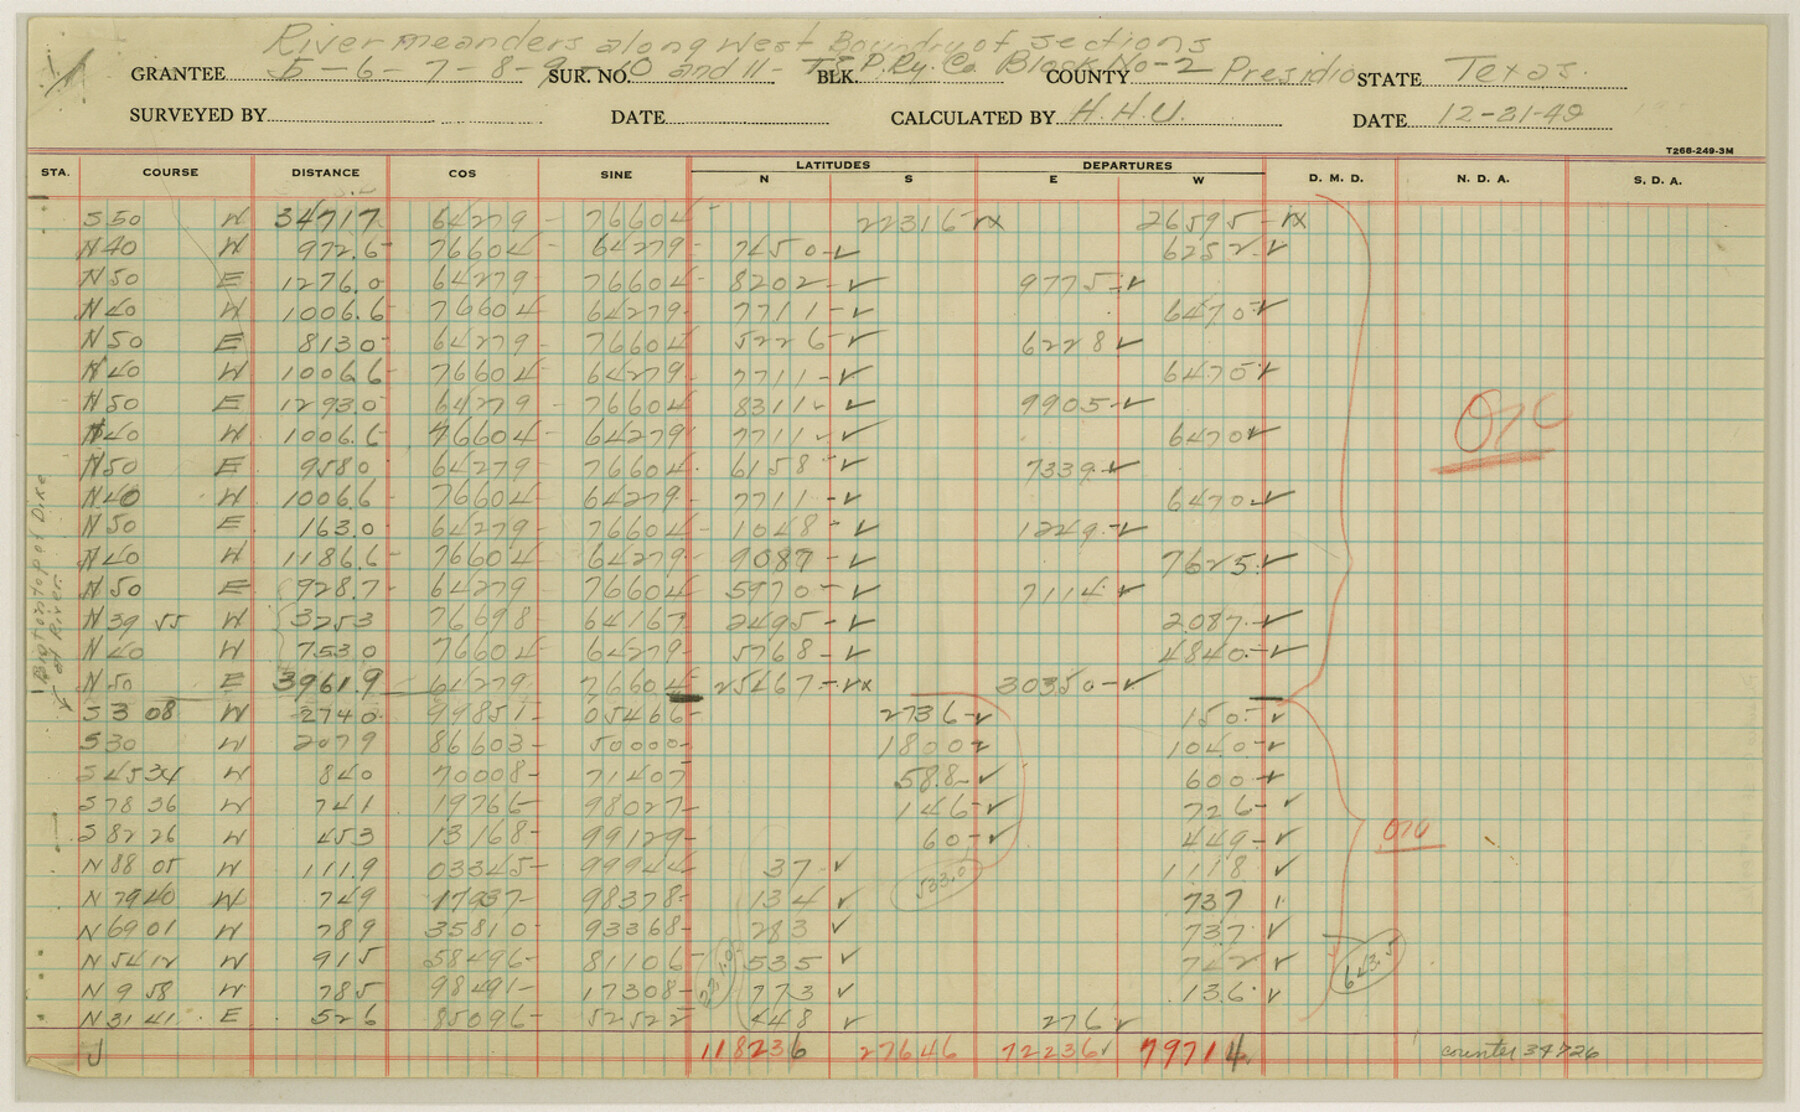 River meanders along West Boundry of sections
GRANTEE 5-6-7-8-9- SUR. NO. 10 and 11- T&P. Ry. Co. BLK. Block No-2 COUNTY Presidio STATE Texas.
SURVEYED BY DATE CALCULATED BY H.H.U. DATE 12-21-49
T268-249-3M
STA. COURSE DISTANCE COS SINE LATITUDES DEPARTURES
N S E W D. M. D. N. D. A. S. D. A.
S 50 W 3471.7 64279 - 76604 - 22316 - vx 26595 - vx
N 40 W 972.6 - 76604 - 64279 - 7450 - ✓ 6252 - ✓
N 50 E 1276.0 64279 - 76604 - 8202 - ✓ 9775 - ✓
N 40 W 1006.6 - 76604 64279 - 7711 - ✓ 6470 - ✓
N 50 E 813.0 - 64279 - 76604 5226 - ✓ 6228 ✓
N 40 W 1006.6 - 76604 - 64279 - 7711 - ✓ 6470 ✓
N 50 E 1293.0 64279 - 76604 8311 - ✓ 9905 - ✓
N 40 W 1006.6 - 76604 - 64279 7711 - ✓ 6470 ✓
N 50 E 958.0 64279 - 76604 - 6158 - ✓ 7339 - ✓
N 40 W 1006.6 - 76604 - 64279 - 7711 - ✓ 6470 - ✓
N 50 E 163.0 64279 - 76604 - 1048 - ✓ 1249 - ✓
N 40 W 1186.6 - 76604 - 64279 - 9089 - ✓ 7625 - ✓
N 50 E 928.7 - 64279 - 76604 5970 - ✓ 7114 - ✓
N 39 55 W 325.3 76698 - 64167 2495 - ✓ 2087 - ✓
N 40 W 753.0 76604 - 64279 - 5768 - ✓ 4840 - ✓
N 50 E 3961.9 64279 76604 25467 - vx 30350 - ✓
S 3 08 W 274.0 99851 - 05466 - 2736 - ✓ 150 - ✓
S 30 W 207.9 86603 - 50000 - 1800 ✓ 1040 - ✓
S 45 34 W 84.0 70008 - 71407 588 - ✓ 600 - ✓
S 78 36 W 74.1 19766 - 98027 - 146 - ✓ 726 - ✓
S 82 26 W 45.3 13168 - 99129 - 60 - ✓ 449 - ✓
N 88 05 W 111.9 03345 - 99944 - 37 ✓ 1118 ✓
N 79 40 W 74.9 17937 - 98378 - 134 ✓ 737
N 69 01 W 78.9 35810 - 93368 - 283 ✓ 737 ✓
N 54 12 W 91.5 58496 - 81106 - 535 ✓ 742 ✓
N 9 58 W 78.5 98491 - 17308 - 773 ✓ 136 ✓
N 31 41 E 52.6 85096 - 52522 448 ✓ 276 ✓
J 118236 27646 72236 ✓ 79714 counter 34726
on top of Dike
of River
OK
OK
533.0
221.0
643.5